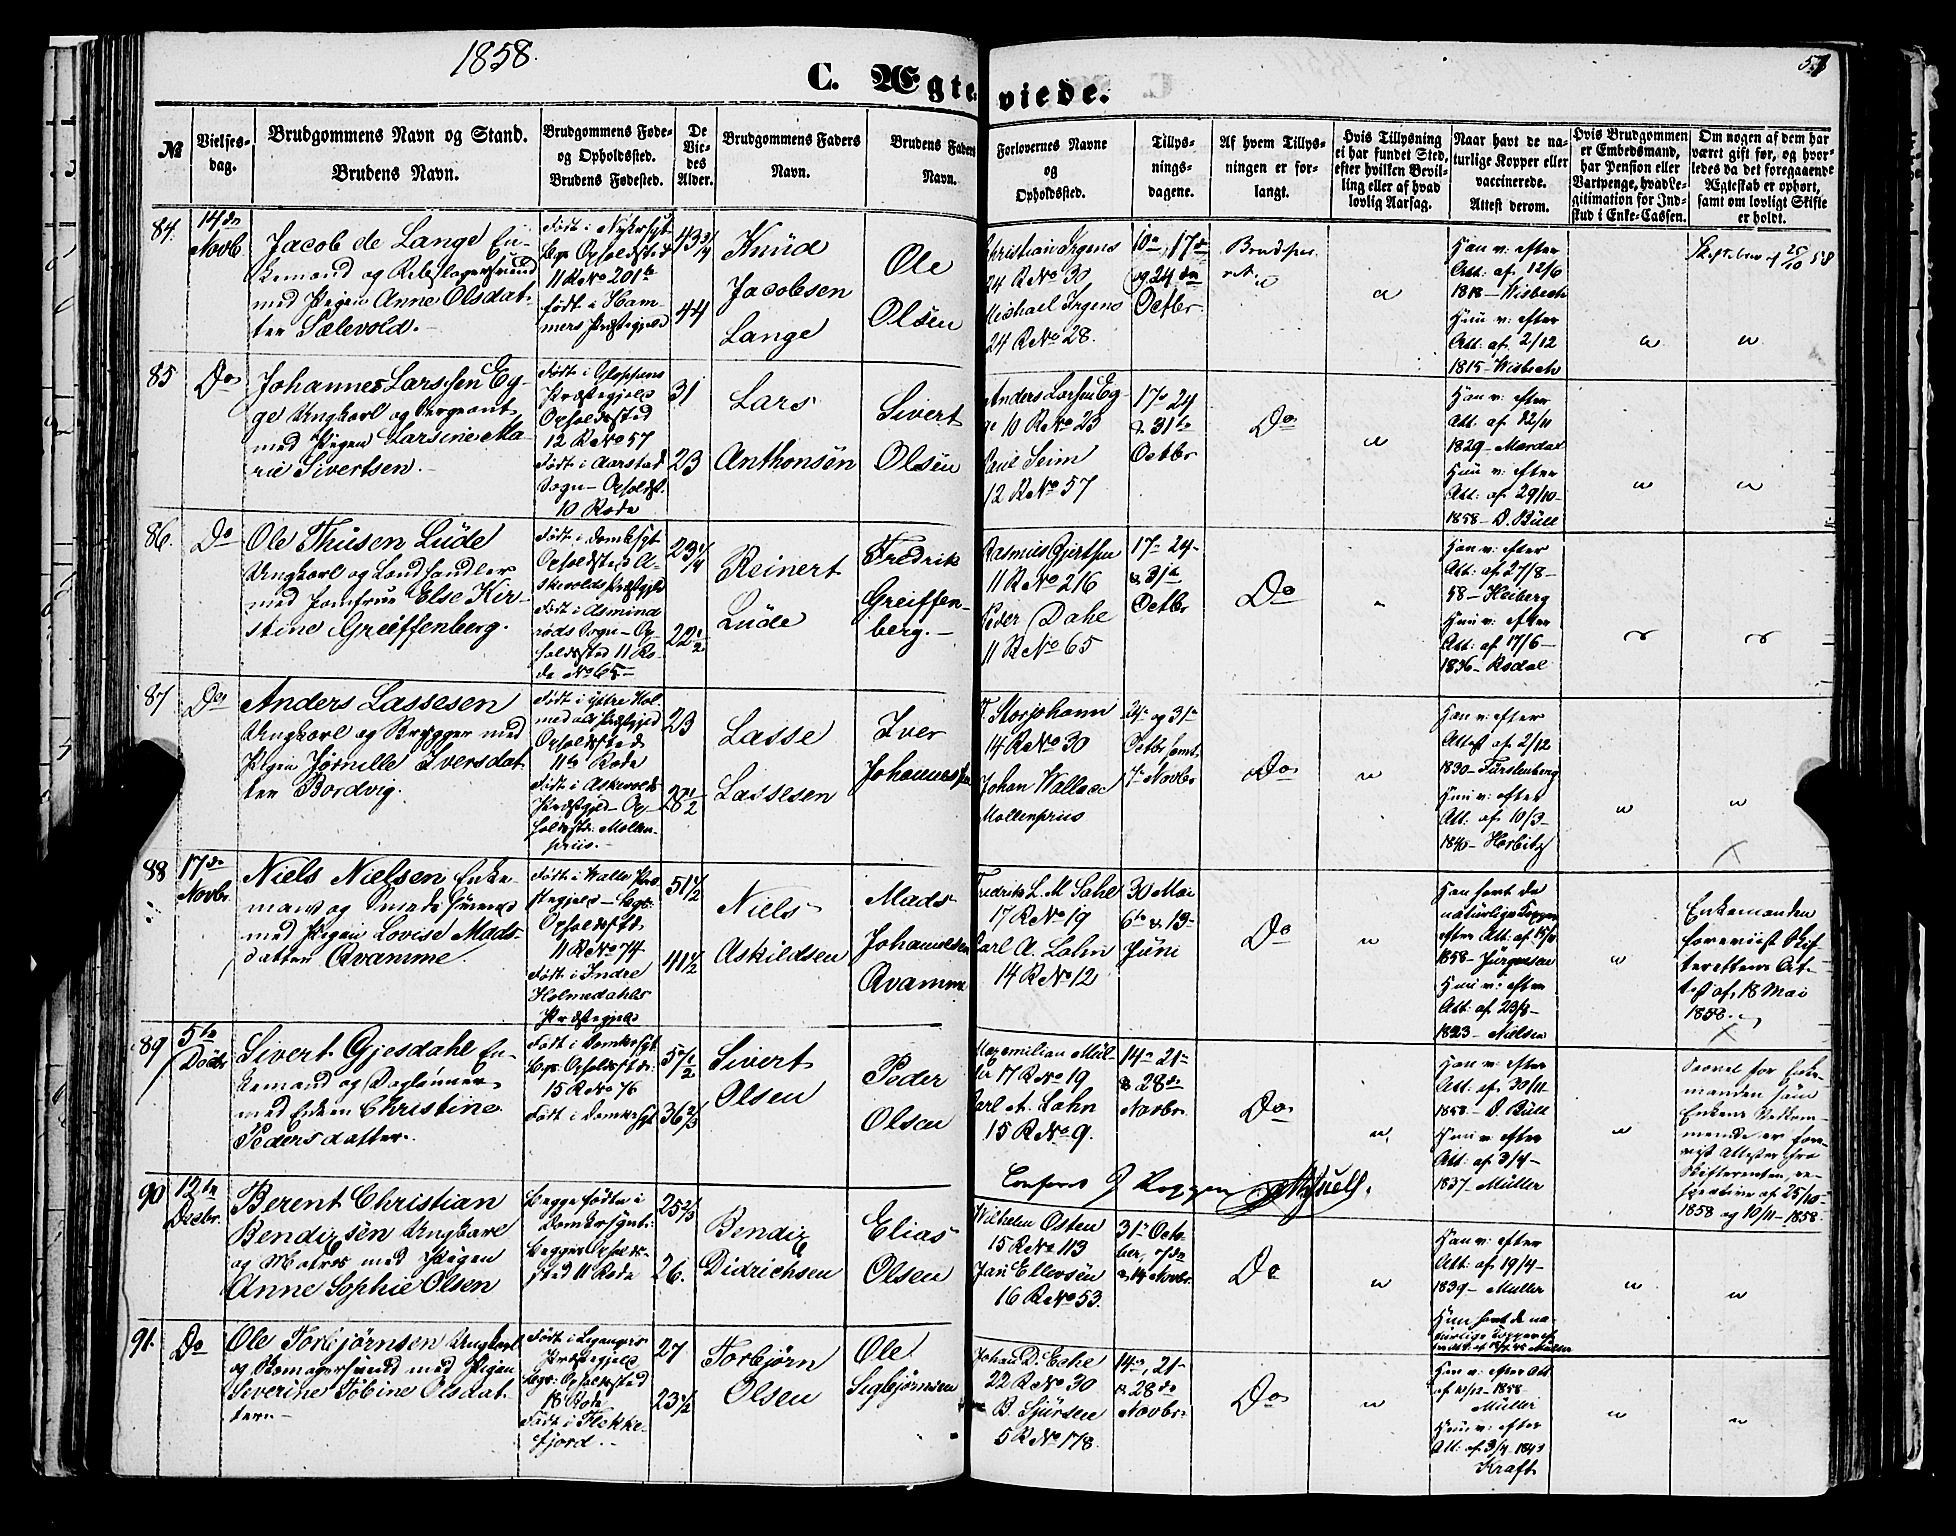 1858.
57
C. Ægteviede.
№
Vielses-
dag.
Brudgommens Navn og Stand.
Brudens Navn.
Brudgommens Føde-
og Opholdssted.
Brudens Fødested.
De
Vie-
des
Alder.
Brudgommens Faders
Navn.
Brudens Faders
Navn.
Forlovernes Navne
og
Opholdssted.
Tillys-
nings-
dagene.
Af hvem Tillys-
ningen er for-
langt.
Hvis Tillysning
ei har fundet Sted,
efter hvilken Bevil-
ling eller af hvad
lovlig Aarsag.
Naar havt de na-
turlige Kopper eller
vaccinerede.
Attest derom.
Hvis Brudgommen
er Embedsmand,
har Pension eller
Vartpenge, hvad Le-
gitimation for Ind-
skud i Enke-Cassen.
Om nogen af dem har
været gift før, og hvor-
ledes da det foregaaende
Ægteskab er ophørt,
samt om lovligt Skifte
er holdt.
84.
14de
Novb
Jacob de Lange En-
kemand og Rebslagersvend
med Pigen Anne Olsdat-
ter Sælevold.
Født i Nykirkesgt
Bgs Opholdssted
11 R No 201
født i Ham-
mers Præstegjeld
43 3/4
44
Knüd
Jacobsen
Lange
Ole
Olsen
Christian Irgens
24 R No 30
Michael Irgens
24 R No 28.
10de, 17de
og 24de
Octbr
Han v: efter
Att. af 12/6
1818 - Wisbech
Hun v: efter
Att: af 2/12
1815 - Wisbech
25/10 58
85
Do
Johannes Larssen Eg-
ge Ungkarl og Sergeant
med Pigen Larsine Ma-
rie Sivertsen.
Født i Gloppens
Præstegjeld
Opholdssted
12 R No 57
Født i Aarstad
Sogn - Opholdst.
10 Rode
31
23
Lars
Anthonsen
Sivert
Olsen
Anders Larsen Eg-
ge 10 R No 23
Paul Seim
12 R No 57
17de 24
& 31te
Octbr
Do
Han v: efter
Att: af 22/11
1829 - Mardal
Hun v: efter
Att: af 29/10
1858 - D. Büll
86.
Do
Ole Thüsen Lüde
Ungkarl og Landhandler
med Jomfrue Else Kir-
stine Greiffenberg.
Født i Domksgt
Opholdssted A-
skevolds Præstegjeld
Født i Asmind
røds Sogn - Op-
holdssted 11 Ro-
de No 65
23 1/4
22 1/2
Reinert
Lüde
Fredrik
Greiffen-
berg.
Rasmus Gjertsen
11 R No 216
Peder Dahl
11 R No 65
17de 24
& 31te
Octbr
Do
Han v: efter
Att: af 27/8
58 - Heiberg
Hun v: efter
Att: af 17/6
1836 - Rodal
87
Do
Anders Lassesen
Ungkarl og Brygger med
Pigen Jørnille Iversdat
ter Bordvig.
Født i ytre Hol
medal Præstegjeld
Opholdssted
11te Rode
Født i Askevolds
Præstegjeld - Op-
holdsst: Møllen-
priis.
23
28 1/2
Lasse
Lassesen
Iver
Johannessen
F. Storjohann
14 R No 30
Johan Wallace
Møllenpriis
24de og 31te
Octbr samt
7de Novbr
Do
Han v: efter
Attest af 2/12
1830 - Fürstenberg
Hun v: efter
Att: af 10/3
1840 - Horbitz
88
17de
Novbr
Niels Nielsen Enke-
mand og Smedesvend
med Pigen Lovise Mads-
datter Qvamme.
Født i Walle Præ-
stegjeld - Bgs
Opholdsstd
11 R No 74
Født i Indre
Holmedahls
Præstegjeld
51 1/2
41 1/2
Niels
Askildsen
Mads
Johannesen
Qvamme
Fredrik L. M. Dahl
17 R No 19
Carl A. Lohn
14 R No 12
30 Mai
6te & 13
Juni
Do
Han havt de
naturlige Kopper
efter Att: af 15/11
1858 - Jürgensen
Hun v: efter
Att: af 23/8
1823 - Nielsen
Enkemanden
foreviist Skif-
terettens At-
test af 18 Mai
1858.
89
5te
Decbr
Sivert Gjesdahl En-
kemand og Daglønner
med Enken Christine
Pedersdatter.
Født i Domkirksgt
Bgs Opholdsstd:
15 R No 76
Født i Domkirksgt
36 2/3
Sivert
Olsen
Peder
Olsen
Maxemilian Mül-
ler 17 R No 19
Carl A. Lohn
15 R No 9.
14de 21de
& 28de
Novbr.
Do
Han v: efter
Att: af 30/11
1858 - D. Büll
Hun v: efter
Att: af 3/4
1837 - Müller
Saavel for Enke-
manden som
Enkens Vedkom-
mende er fore-
viist Attester fra
Skifteretten re-
spective af 25/10
1858 og 10/11 - 1858.
90
12te
Decbr.
Berent Christian
Bendixsen Ungkarl
og Matros med Pigen
Anne Sophie Olsen
Begge fødte i
Domkirksgnt:
Begges Opholds-
sted 11 Rode
25 2/3
26.
Bendix
Didrichsen
Elias
Olsen
Wilhelm Osten
15 R No 113
Jan Ellevsen
16 R No 53.
31te Octo-
ber, 7de
& 14 Novbr
Do
Han v: efter
Att: af 19/4
1839 - Müller
Hun havt de na-
turlige Kopper
91.
Do
Ole Torbjørnsen Ungkarl
og Skomagersvend med Pigen
Severine Tobine Olsdat-
ter
Født i Leganger
Præstegjeld
Bgs: Opholdssted
18 Rode
Født i Flekke-
fjord.
27
23 1/2
Torbjørn
Olsen
Ole
Sigbjørnsen
Johan D. Eche
22 R No 30
B. Sjursen
5 R No 178.
14de, 21
& 28de
Novbr.
Do
Han v: efter Att
1858
Müller
Hun v: efter
Att: af 3/4 1843
Kraft